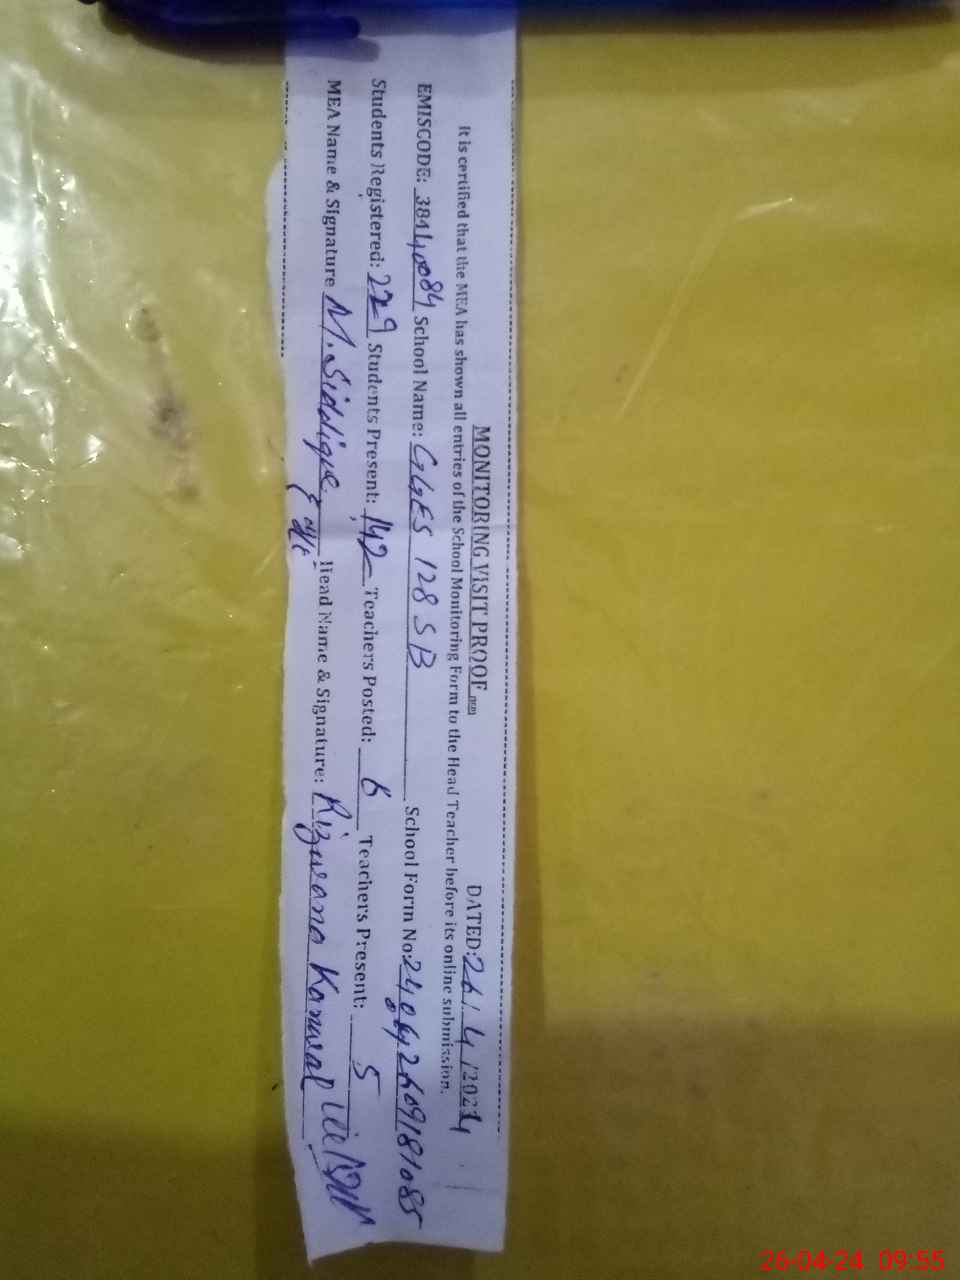 MONITORING VISIT PROOF
DATED: 26/4/2024
It is certified that the MEA has shown all entries of the School Monitoring Form to the Head Teacher before its online submission.
EMISCODE: 38440084 School Name: GGES 128 SB School Form No: 24042609181085
Students Registered: 229 Students Present: 142 Teachers Posted: 6 Teachers Present: 5
MEA Name & Signature M. Siddique Head Name & Signature: Rizwana Kanwal
26-04-24 09:55